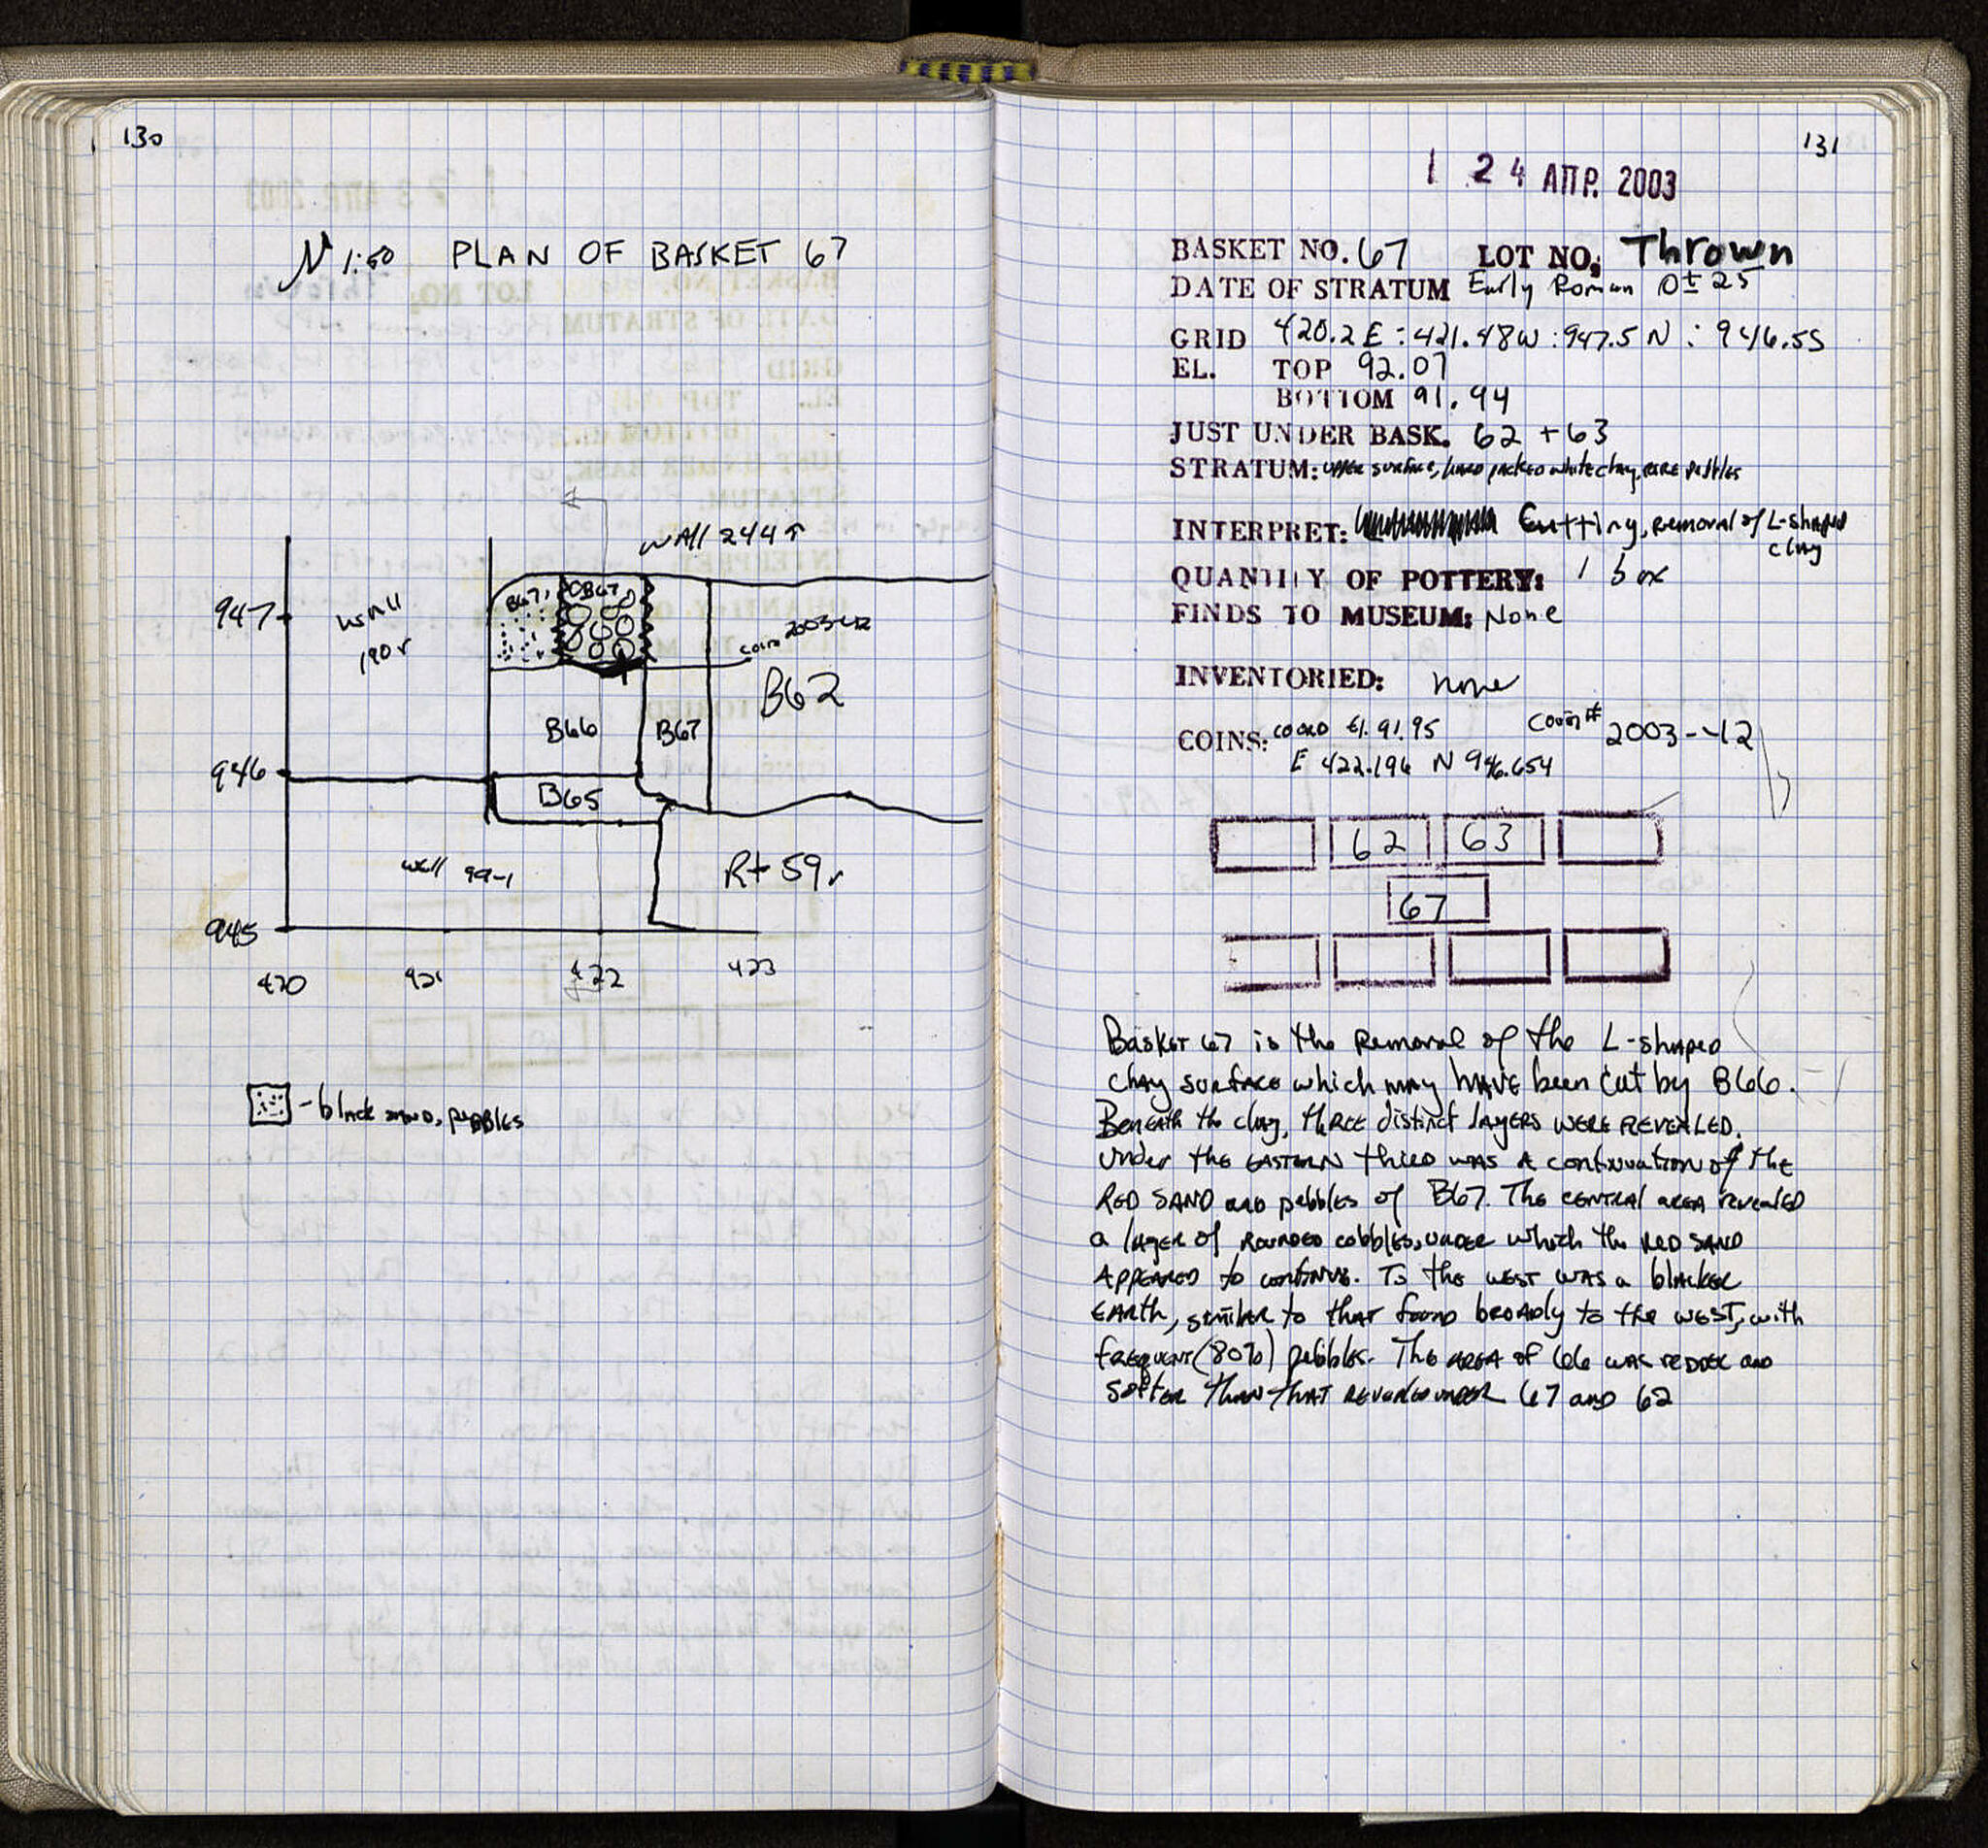 130
N 1:50 PLAN OF BASKET 67
Wall 244 ↑
947
Wall
190r
B67
B67
coin 2003-42
B62
946
B66
B67
B65
Wall 99-1
Rt 59
945
420
421
422
423
- black sand, pebbles
131
1 24 ΑΠΡ. 2003
BASKET NO. 67 LOT NO. Thrown
DATE OF STRATUM Early Roman 0±25
GRID 420.2E : 421.48W : 947.5N : 946.5S
EL. TOP 92.07
BOTTOM 91.94
JUST UNDER BASK. 62 + 63
STRATUM: upper surface, hard packed white clay, rare pebbles
INTERPRET: Cutting, removal of L-shaped
clay
QUANTITY OF POTTERY: 1 box
FINDS TO MUSEUM: None
INVENTORIED: none
COINS: coord el. 91.95 Coin# 2003-42
E 422.196 N 946.654
62 63
67
Basket 67 is the Removal of the L-shaped
clay surface which may have been cut by B66.
Beneath the clay, three distinct layers were revealed.
Under the eastern third was a continuation of the
red sand and pebbles of B67. The central area revealed
a layer of rounded cobbles, under which the red sand
appeared to continue. To the west was a blacker
earth, similar to that found broadly to the west, with
frequent (80%) pebbles. The area of 66 was redder and
softer than that revealed under 67 and 62